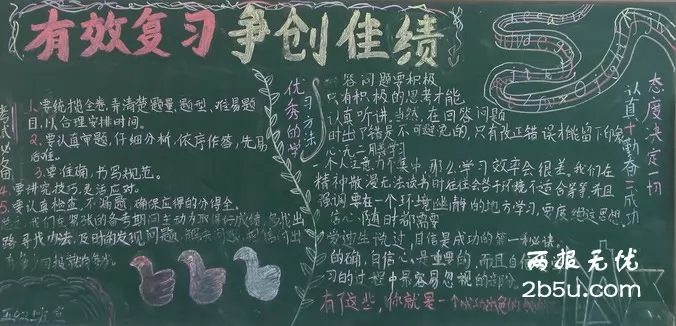 有效复习 争创佳绩
考试必备
1.要统揽全卷,弄清楚题量、题型、难易题
目,以合理安排时间。
2.要认真审题,仔细分析,依序作答,先易
后难。
3.要准确,书写规范。
4.要讲究技巧,灵活应对。
5.要认真检查,不漏题,确保应得的分得全。
我们在紧张的备考期间主动为取得好成绩
寻找办法,及时的发现问题,
优秀的学习方法
答问题要积极
只有积极的思考才能
认真听讲,当然,在回答问题
时出了错是不可避免的,只有改正错误才能留下印象
心无二用学习
个人注意力不集中,那么学习效率会很差。我们在
精神散漫无法读书时往往会当于环境不适合等等,并且
强调要在一个环境幽静的地方学习,要屏绝这思想
信心随时都需要
爱迪生说过,自信是成功的第一秘诀。
的确,自信心是重要的,而且自信
习的过程中最容易忽视的部分。
有了这些,你就是一个成功
态度决定一切
认真+勤奋=成功
两报无优
2b5u.com